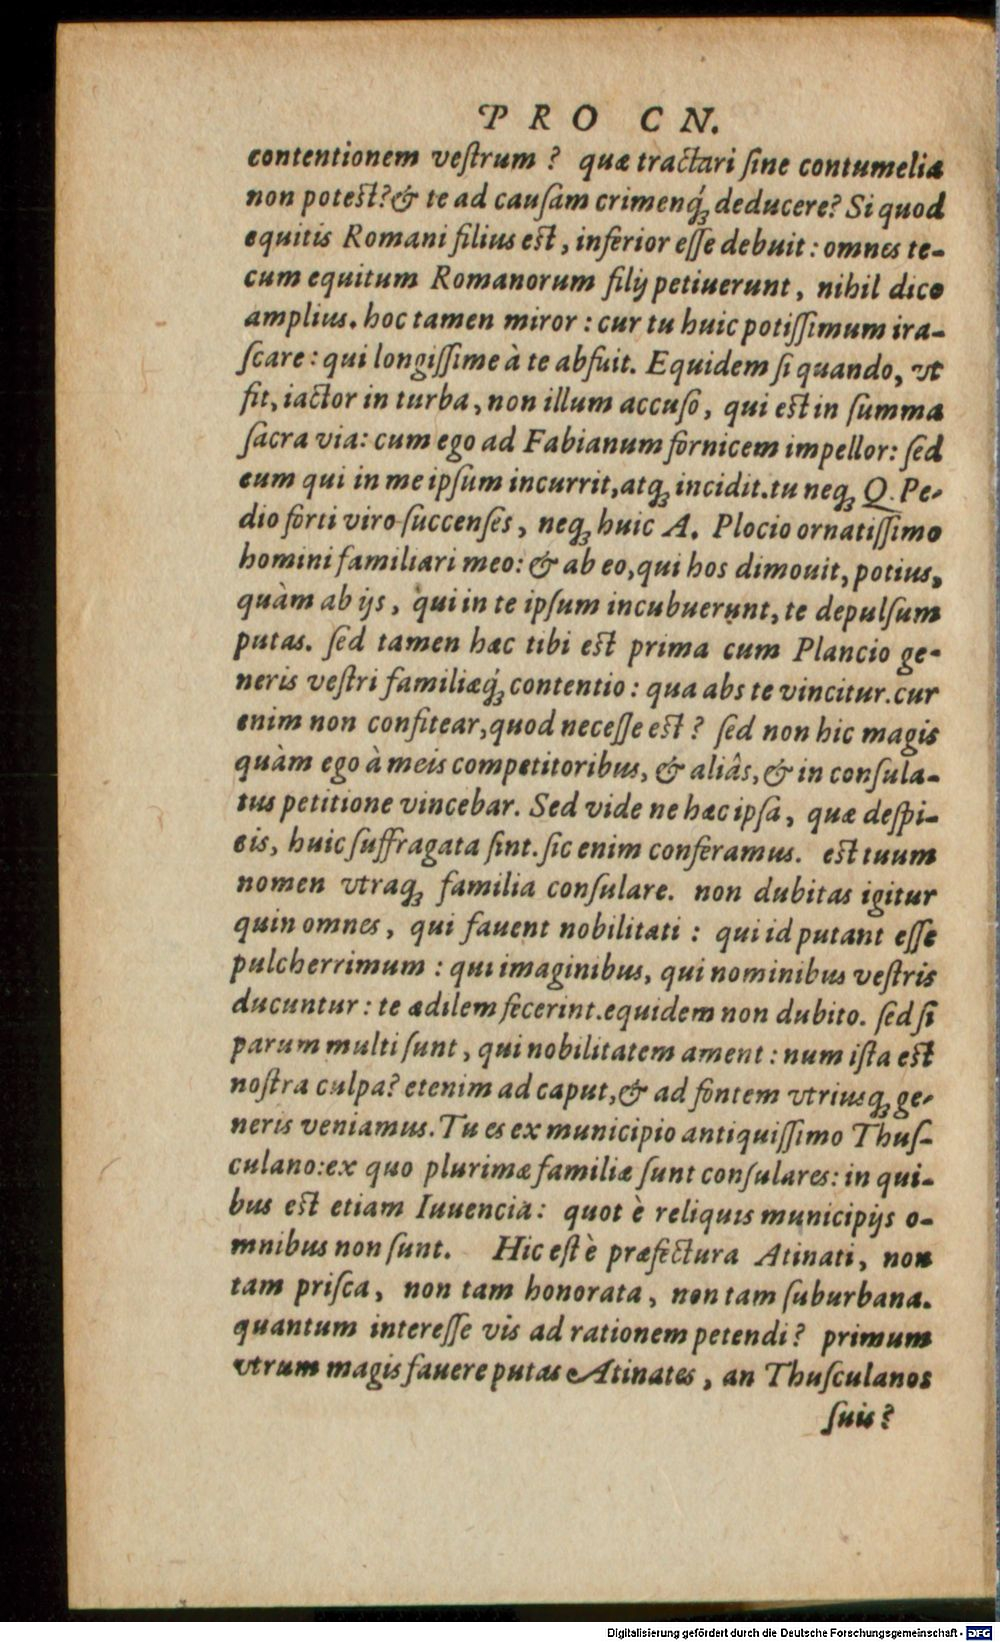 PRO CN.
contentionem veſtrum? quæ tractari ſine contumelia
non poteſt? & te ad cauſam crimenq́ꝫ deducere? Si quod
equitis Romani filius eſt, inferior eſſe debuit: omnes te-
cum equitum Romanorum filij petiuerunt, nihil dico
amplius. hoc tamen miror: cur tu huic potiſſimum ira-
ſcare: qui longiſſime à te abfuit. Equidem ſi quando, vt
fit, iactor in turba, non illum accuſo, qui eſt in ſumma
ſacra via: cum ego ad Fabianum fornicem impellor: ſed
eum qui in me ipſum incurrit, atqꝫ incidit. tu neqꝫ Q. Pe-
dio forti viro ſuccenſes, neqꝫ huic A. Plocio ornatiſſimo
homini familiari meo: & ab eo, qui hos dimouit, potius,
quàm ab ijs, qui in te ipſum incubuerunt, te depulſum
putas. ſed tamen hæc tibi eſt prima cum Plancio ge-
neris veſtri familiæq́ꝫ contentio: qua abs te vincitur. cur
enim non confitear, quod neceſſe eſt? ſed non hic magis
quàm ego à meis competitoribus, & aliâs, & in conſula-
tus petitione vincebar. Sed vide ne hæc ipſa, quæ deſpi-
cis, huic ſuffragata ſint. ſic enim conferamus. eſt tuum
nomen vtraqꝫ familia conſulare. non dubitas igitur
quin omnes, qui fauent nobilitati: qui id putant eſſe
pulcherrimum: qui imaginibus, qui nominibus veſtris
ducuntur: te ædilem fecerint. equidem non dubito. ſed ſi
parum multi ſunt, qui nobilitatem ament: num iſta eſt
noſtra culpa? etenim ad caput, & ad fontem vtriusqꝫ ge-
neris veniamus. Tu es ex municipio antiquiſſimo Thuſ-
culano: ex quo plurimæ familiæ ſunt conſulares: in qui-
bus eſt etiam Iuuencia: quot è reliquis municipijs o-
mnibus non ſunt. Hic eſt è præfectura Atinati, non
tam priſca, non tam honorata, non tam ſuburbana.
quantum intereſſe vis ad rationem petendi? primum
vtrum magis fauere putas Atinates, an Thuſculanos
ſuis?
Digitalisierung gefördert durch die Deutsche Forschungsgemeinschaft - DFG